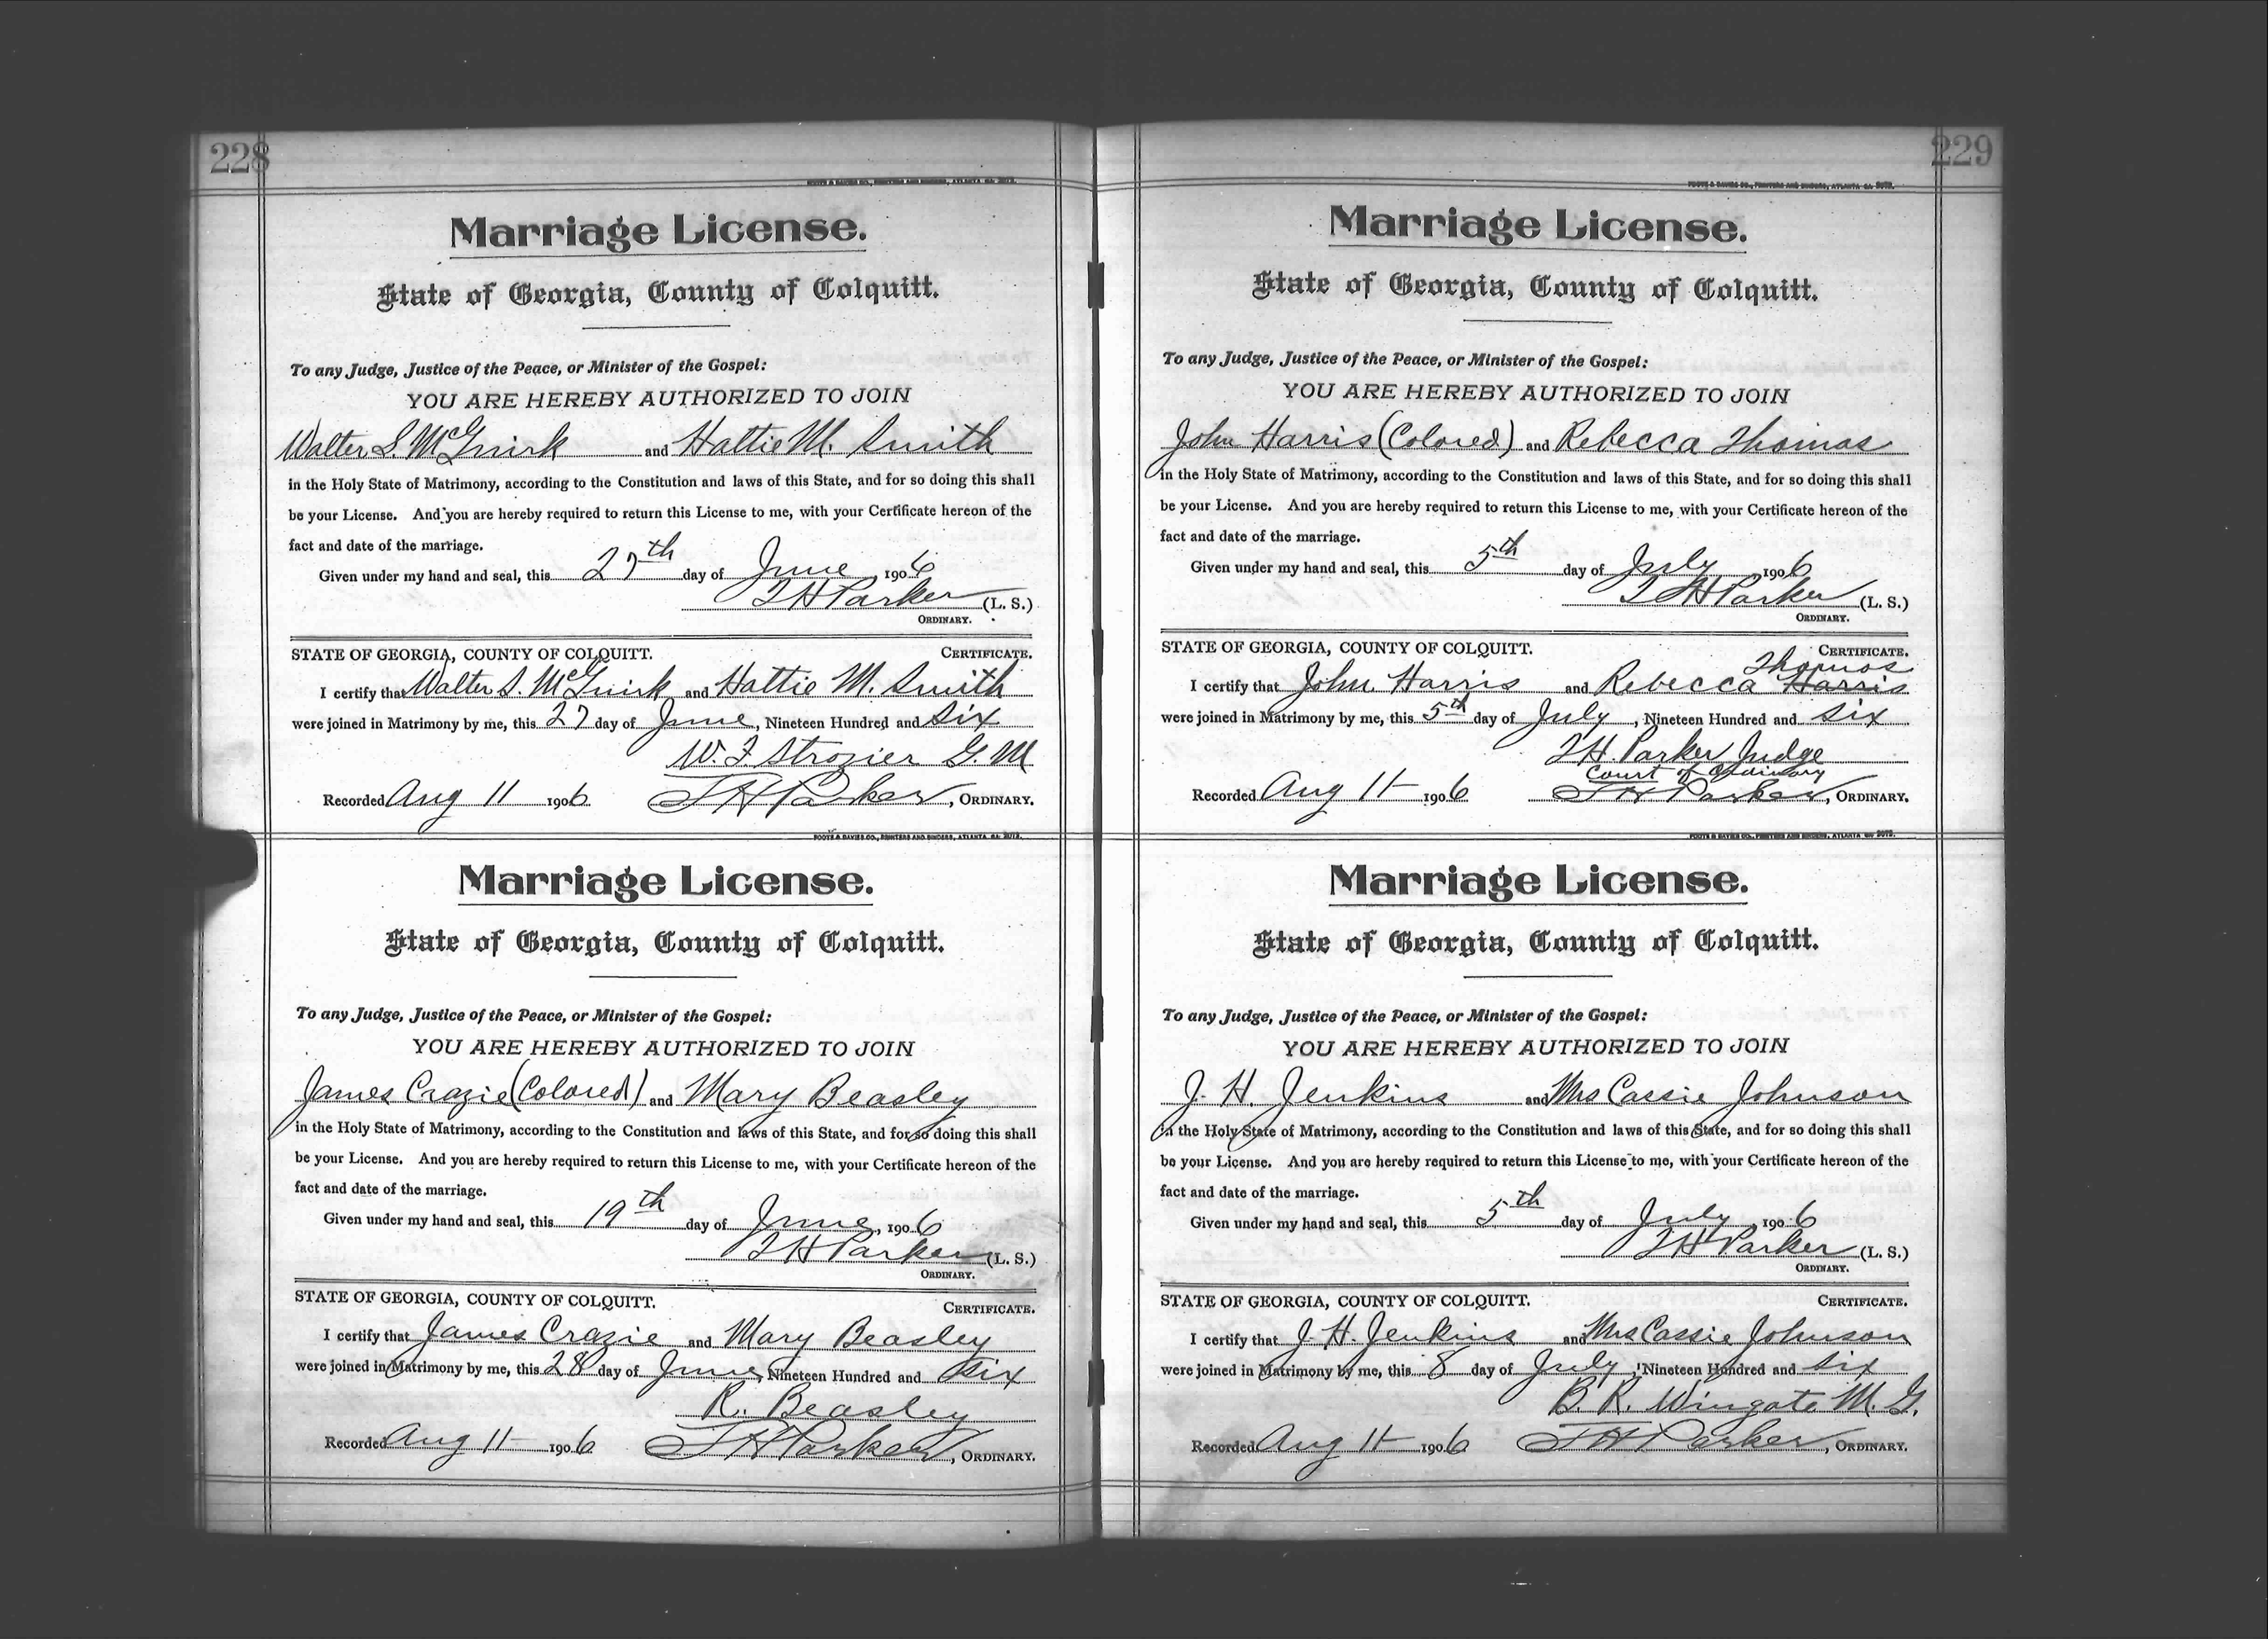 228
FOOTE & DAVIES CO., PRINTERS AND BINDERS, ATLANTA GA.
Marriage License.
State of Georgia, County of Colquitt.
To any Judge, Justice of the Peace, or Minister of the Gospel:
YOU ARE HEREBY AUTHORIZED TO JOIN
Walter S. McGuirk and Hattie M. Smith
in the Holy State of Matrimony, according to the Constitution and laws of this State, and for so doing this shall
be your License. And you are hereby required to return this License to me, with your Certificate hereon of the
fact and date of the marriage.
Given under my hand and seal, this 27th day of June 1906
T H Parker (L. S.)
ORDINARY.
STATE OF GEORGIA, COUNTY OF COLQUITT. CERTIFICATE.
I certify that Walter S. McGuirk and Hattie M. Smith
were joined in Matrimony by me, this 27 day of June, Nineteen Hundred and Six
W. F. Strozier G. M
Recorded Aug 11 1906 T H Parker, ORDINARY.
FOOTE & DAVIES CO., PRINTERS AND BINDERS, ATLANTA GA.
Marriage License.
State of Georgia, County of Colquitt.
To any Judge, Justice of the Peace, or Minister of the Gospel:
YOU ARE HEREBY AUTHORIZED TO JOIN
James Crazie (Colored) and Mary Beasley
in the Holy State of Matrimony, according to the Constitution and laws of this State, and for so doing this shall
be your License. And you are hereby required to return this License to me, with your Certificate hereon of the
fact and date of the marriage.
Given under my hand and seal, this 19th day of June, 1906
T H Parker (L. S.)
ORDINARY.
STATE OF GEORGIA, COUNTY OF COLQUITT. CERTIFICATE.
I certify that James Crazie and Mary Beasley
were joined in Matrimony by me, this 28 day of June, Nineteen Hundred and Six
R. Beasley
Recorded Aug 11 1906 T H Parker, ORDINARY.
229
FOOTE & DAVIES CO., PRINTERS AND BINDERS, ATLANTA GA.
Marriage License.
State of Georgia, County of Colquitt.
To any Judge, Justice of the Peace, or Minister of the Gospel:
YOU ARE HEREBY AUTHORIZED TO JOIN
John Harris (Colored) and Rebecca Thomas
in the Holy State of Matrimony, according to the Constitution and laws of this State, and for so doing this shall
be your License. And you are hereby required to return this License to me, with your Certificate hereon of the
fact and date of the marriage.
Given under my hand and seal, this 5th day of July, 1906
T H Parker (L. S.)
ORDINARY.
STATE OF GEORGIA, COUNTY OF COLQUITT. CERTIFICATE.
Thomas
I certify that John Harris and Rebecca Harris
were joined in Matrimony by me, this 5th day of July, Nineteen Hundred and Six
T H. Parker Judge
Court of Ordinary
Recorded Aug 11 1906 T H Parker, ORDINARY.
FOOTE & DAVIES CO., PRINTERS AND BINDERS, ATLANTA GA.
Marriage License.
State of Georgia, County of Colquitt.
To any Judge, Justice of the Peace, or Minister of the Gospel:
YOU ARE HEREBY AUTHORIZED TO JOIN
J. H. Jenkins and Mrs Cassie Johnson
in the Holy State of Matrimony, according to the Constitution and laws of this State, and for so doing this shall
be your License. And you are hereby required to return this License to me, with your Certificate hereon of the
fact and date of the marriage.
Given under my hand and seal, this 5th day of July, 1906
T H Parker (L. S.)
ORDINARY.
STATE OF GEORGIA, COUNTY OF COLQUITT. CERTIFICATE.
I certify that J. H. Jenkins and Mrs Cassie Johnson
were joined in Matrimony by me, this 8 day of July, Nineteen Hundred and Six
B. R. Wingate M. G.
Recorded Aug 11 1906 T H Parker, ORDINARY.